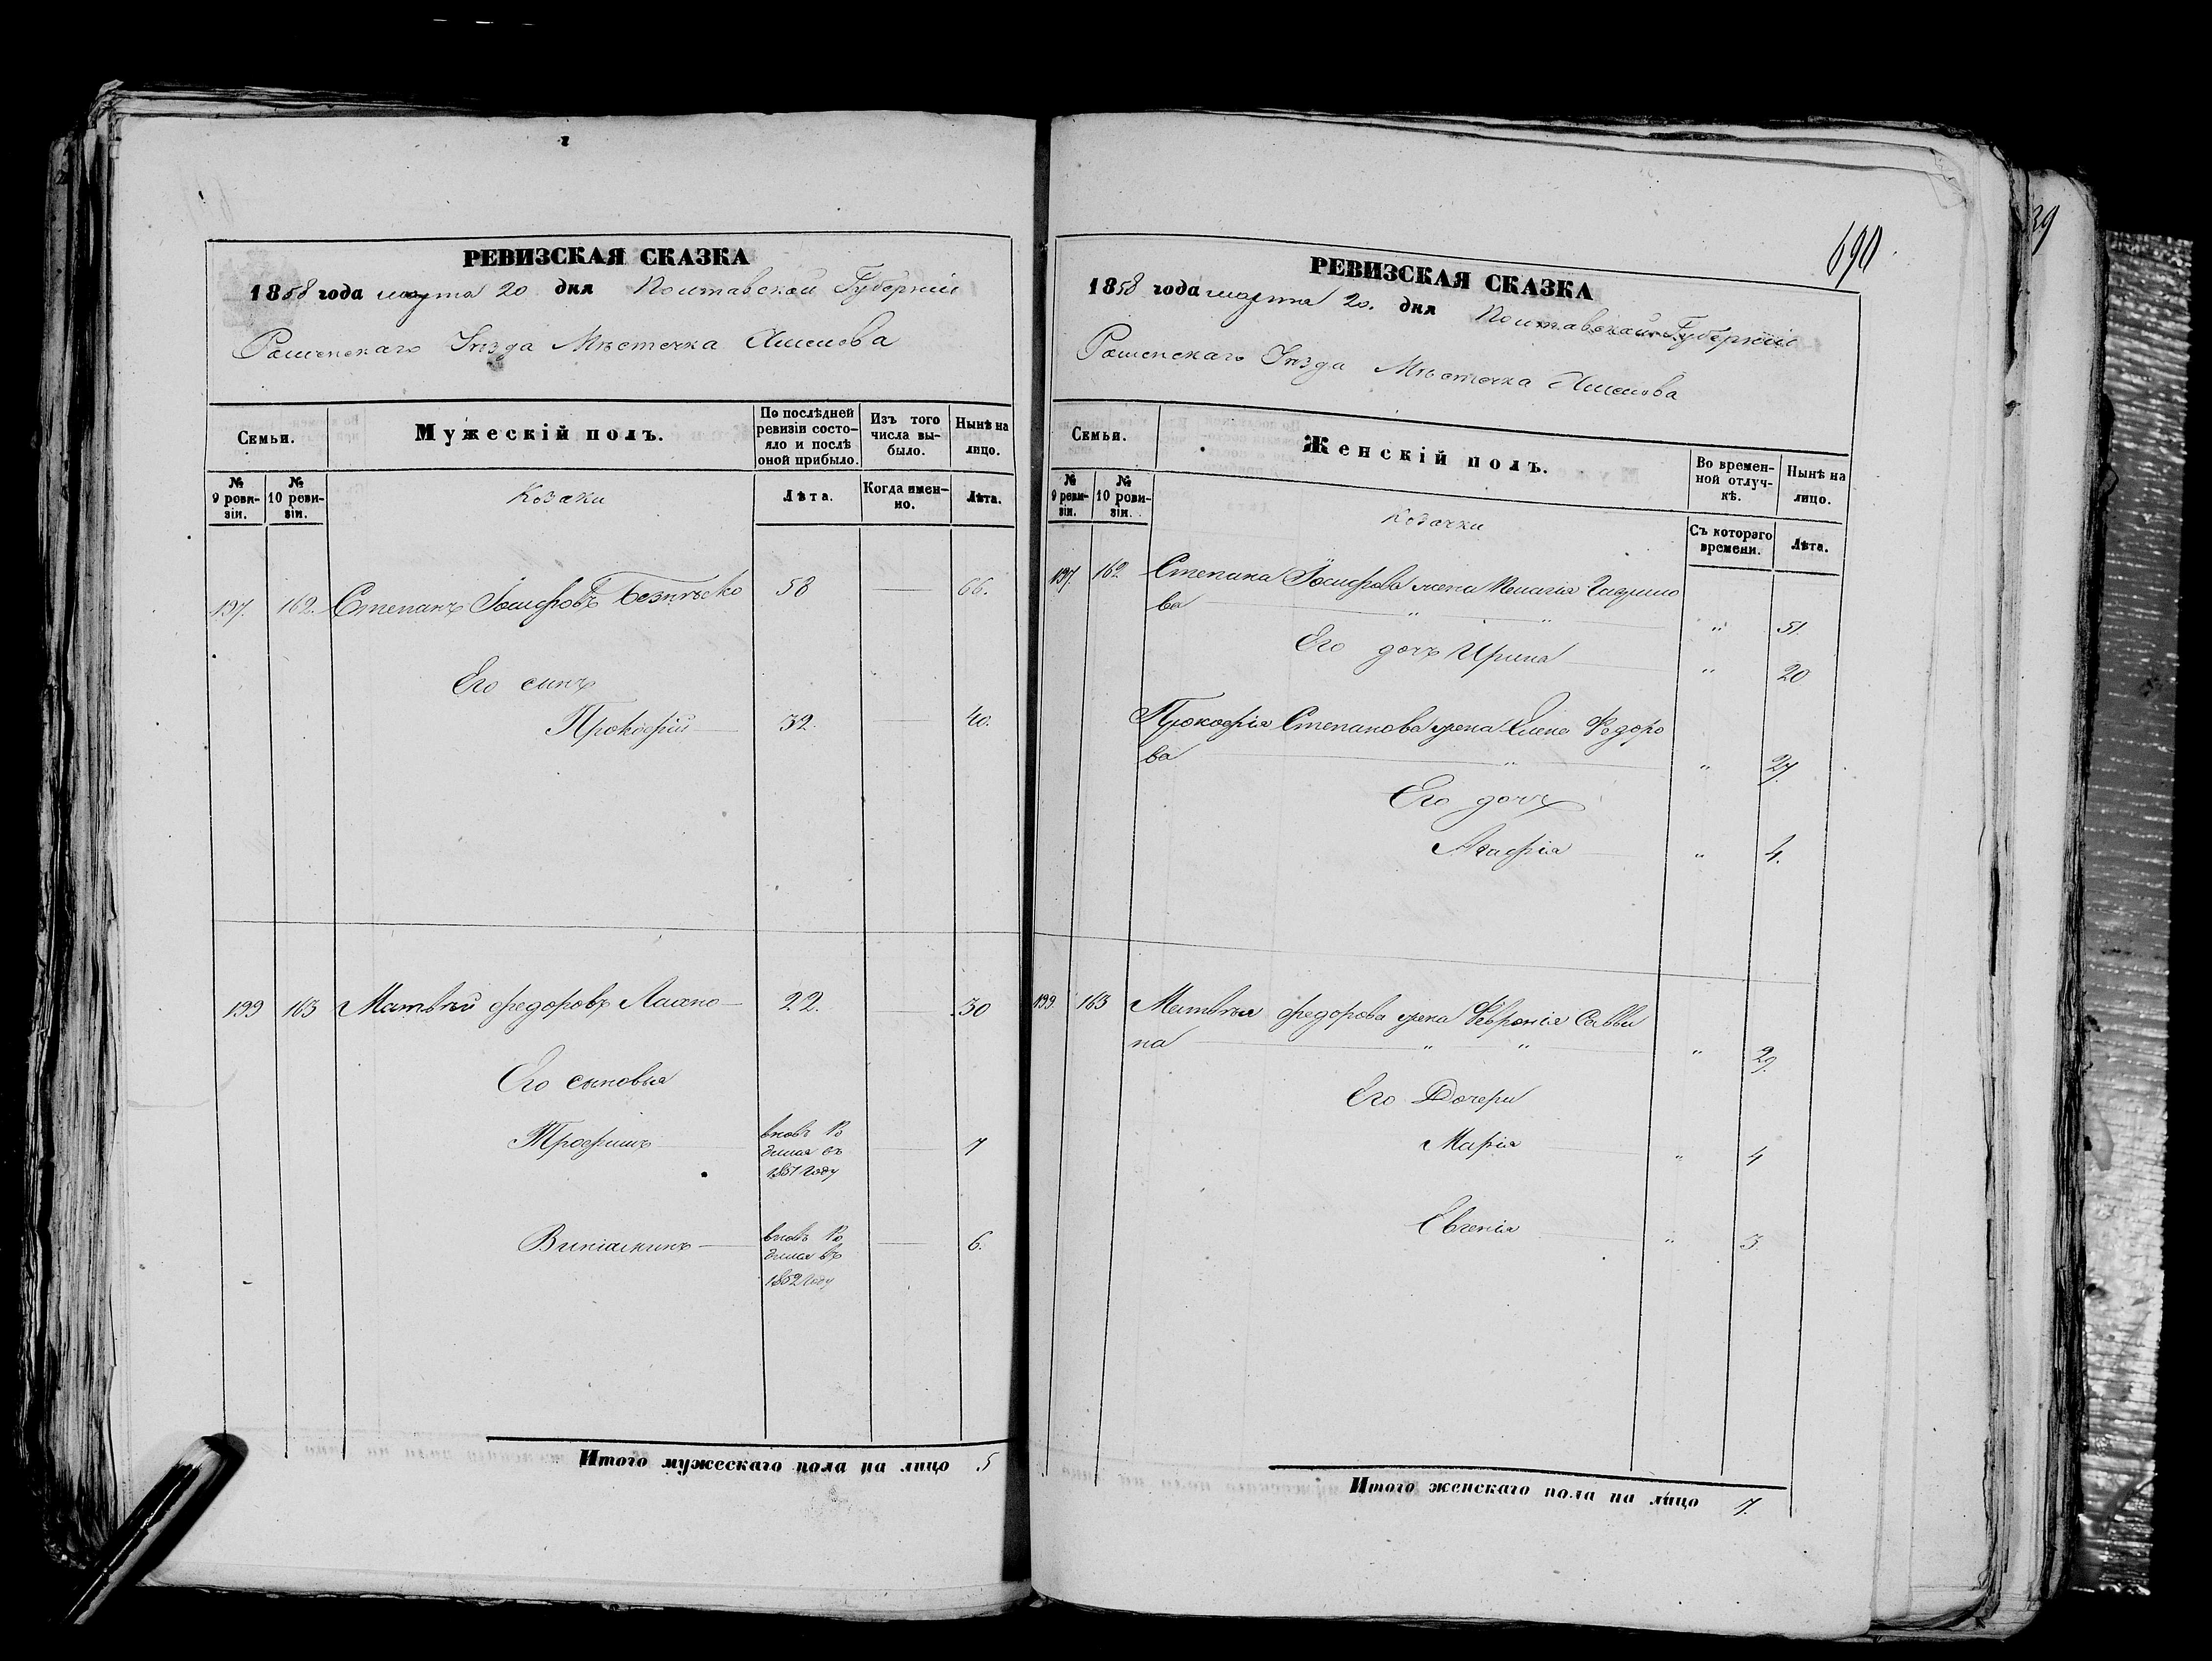 РЕВИЗСКАЯ СКАЗКА
1858 года марта 20 дня Полтавской Губерніи
Роменскаго Уѣзда Мѣстечка Хмелова
Семьи.
Мужескій полъ.
По послѣдней ревизіи состояло и послѣ оной прибыло.
Изъ того числа выбыло.
Нынѣ на лицо.
№ 9 ревизіи.
№ 10 ревизіи.
Козаки
Лѣта.
Когда именно.
Лѣта.
197. 162. Степанъ Іосифовъ 58 — 66.
Его сынъ
Прокофій — 32. — 40.
199 163 Матвѣй Федоровъ — 22. — 30
Его сыновья
Трофимъ — вновь ро
дился въ — 7
1851 году
вновь ро
дился въ — 6.
1852 году
Итого мужескаго пола на лицо 5
690
39
РЕВИЗСКАЯ СКАЗКА
1858 года марта 20. дня Полтавской Губерніи
Роменскаго Уѣзда Мѣстечка Хмелова
Семьи.
Женскій полъ.
Во временной отлучкѣ.
Нынѣ на лицо.
№ 9 ревизіи.
№ 10 ревизіи.
Козачки
Съ котораго времени.
Лѣта.
197. 162. Степана Іосифова жена Пелагія Гаврило
ва " " — " 51.
Его дочь Ирина — " 20
Прокофія Степанова жена Елена Федоро
ва — " — " 27.
Его дочь
Агафія — " 4.
199 163 Матвѣя Федорова жена Февронія Савви
на — " " — " 29.
Его Дочери
Марія — " 4
Евгенія — " 3.
Итого женскаго пола на лицо 7.